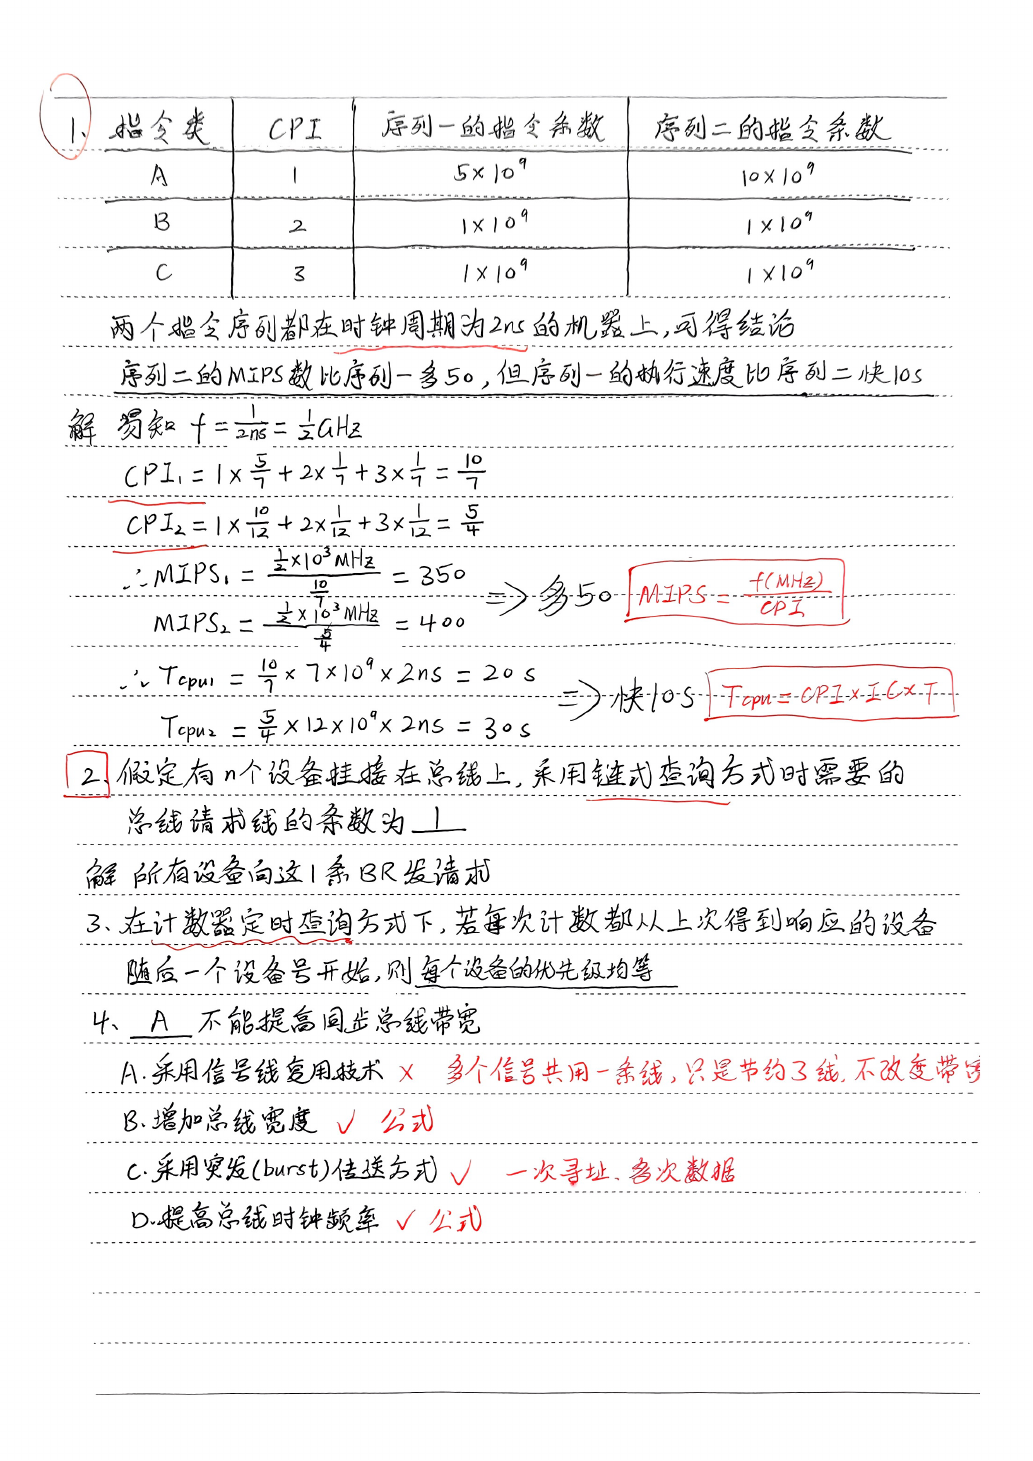 1、 指令类 CPI 序列一的指令条数 序列二的指令条数
A 1 5×10⁹ 10×10⁹
B 2 1×10⁹ 1×10⁹
C 3 1×10⁹ 1×10⁹
两个指令序列都在时钟周期为2ns的机器上,可得结论
序列二的MIPS数比序列一多50,但序列一的执行速度比序列二快10s
解 易知 f = 1/2ns = 1/2 GHz
CPI₁ = 1×5/7 + 2×1/7 + 3×1/7 = 10/7
CPI₂ = 1×10/12 + 2×1/12 + 3×1/12 = 5/4
∴ MIPS₁ = (1/2×10³MHz)/(10/7) = 350
MIPS₂ = (1/2×10³MHz)/(5/4) = 400
=> 多50 MIPS = f(MHz)/CPI
∴ Tcpu₁ = 10/7 × 7×10⁹ × 2ns = 20s
Tcpu₂ = 5/4 × 12×10⁹ × 2ns = 30s
=> 快10s Tcpu = CPI×IC×T
2、假定有n个设备挂接在总线上,采用链式查询方式时需要的
总线请求线的条数为 1
解 所有设备向这1条BR发请求
3、在计数器定时查询方式下,若每次计数都从上次得到响应的设备
随后一个设备号开始,则每个设备的优先级均等
4、 A 不能提高同步总线带宽
A.采用信号线复用技术 × 多个信号共用一条线,只是节约了线,不改变带宽
B.增加总线宽度 ✓ 公式
C.采用突发(burst)传送方式 ✓ 一次寻址、多次数据
D.提高总线时钟频率 ✓ 公式